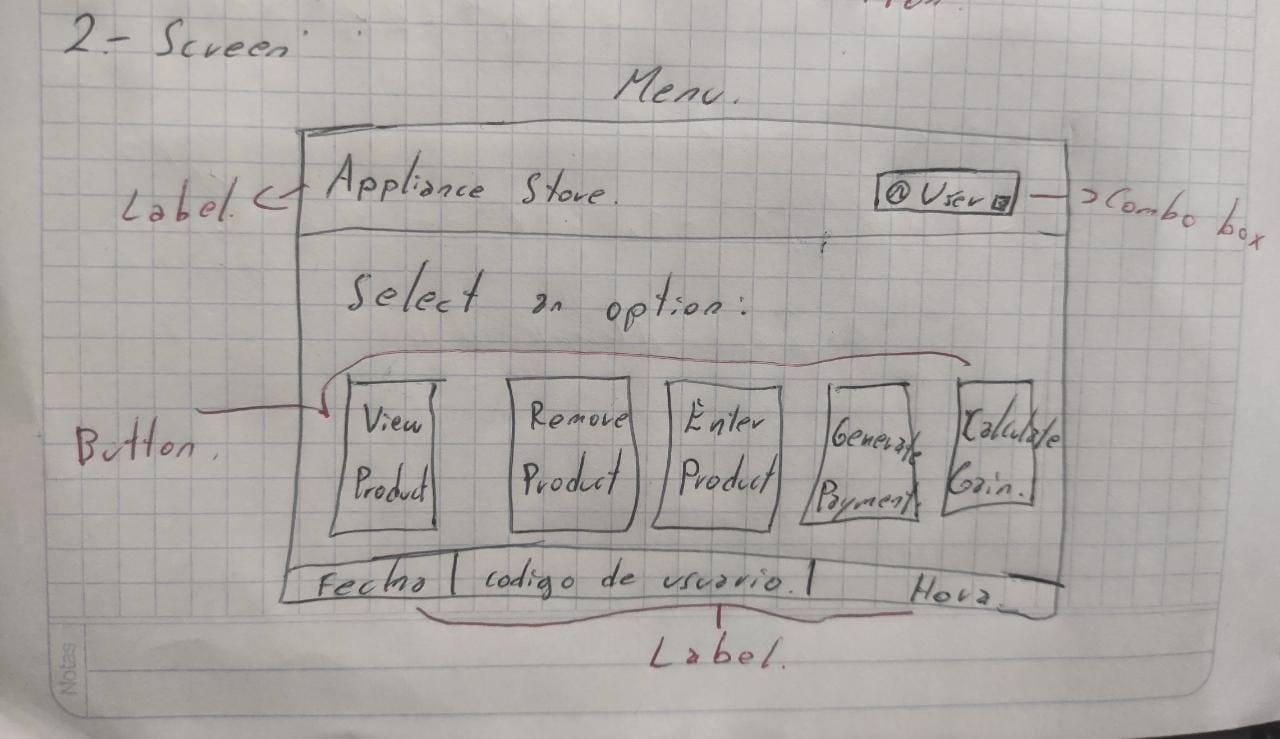 2.- Screen
Menu.
Appliance Store.
User
Label.
Combo box
Select an option:
View
Product
Remove
Product
Enter
Product
Generate
Payment
Calculate
Gain.
Button.
Fecha
codigo de usuario.
Hora
Label.
Notas